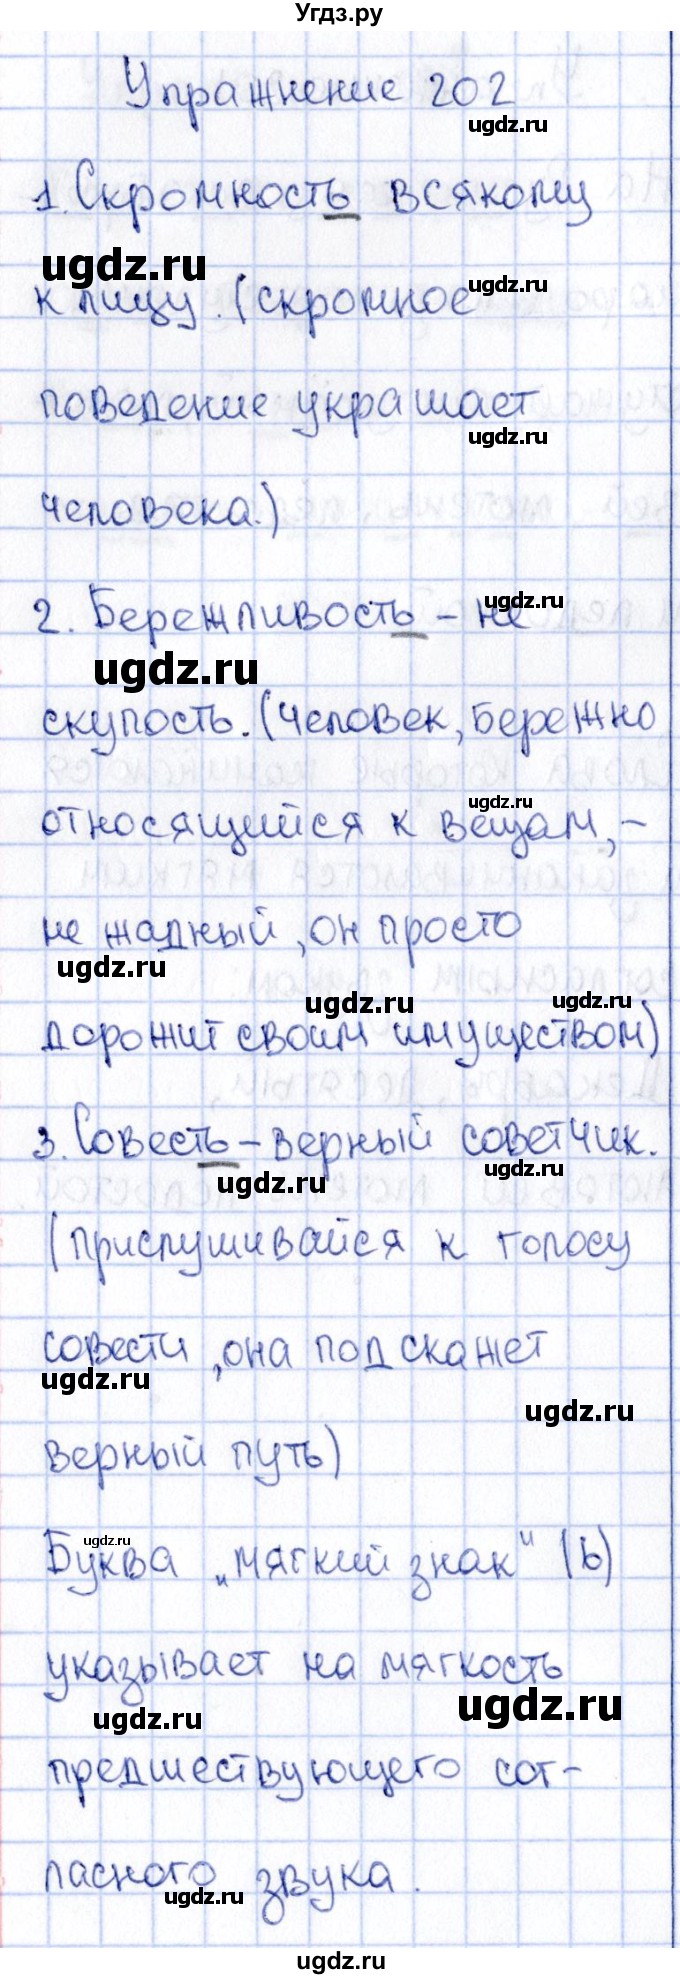 Угдз.ру
Упражнение 202
ugdz.ru
1. Скромность всякому
ugdz.ru
ugdz.ru
к лицу. (скромное
поведение украшает
ugdz.ru
человека.)
2. Бережливость - не
ugdz.ru
ugdz.ru
скупость. (Человек, бережно
относящийся к вещам, -
ugdz.ru
не жадный, он просто
ugdz.ru
ugdz.ru
ugdz.ru
дорожит своим имуществом)
3. Совесть - верный советчик.
ugdz.ru
ugdz.ru
(Прислушивайся к голосу
совести, она подскажет
ugdz.ru
ugdz.ru
верный путь)
ugdz.ru
Буква „мягкий знак" (ь)
указывает на мягкость
ugdz.ru
ugdz.ru
предшествующего сог-
ласного звука.
ugdz.ru
ugdz.ru